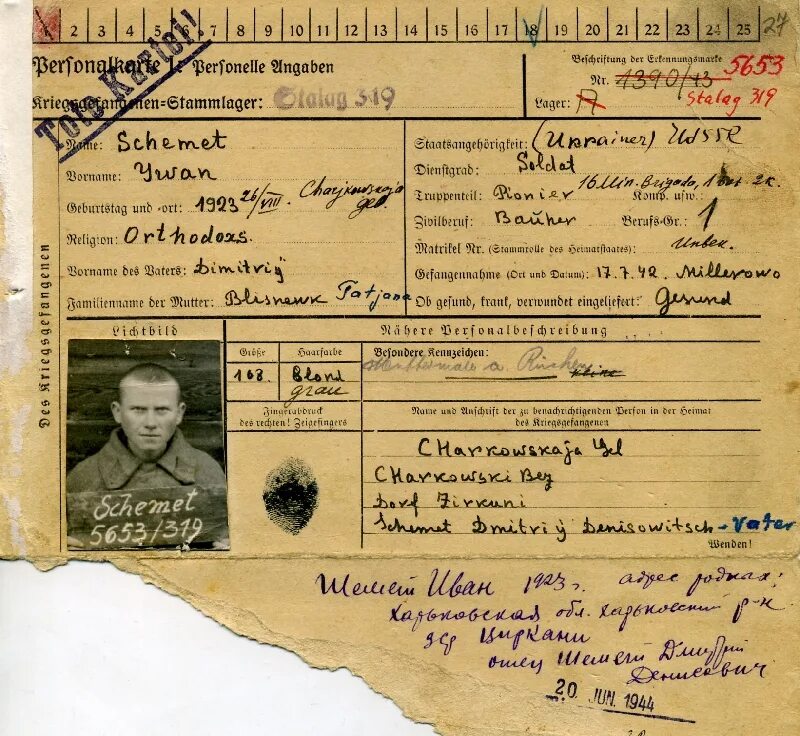 1 2 3 4 5 6 7 8 9 10 11 12 13 14 15 16 17 18 19 20 21 22 23 24 25 27
Personalkarte I: Personelle Angaben
Kriegsgefangenen-Stammlager: Stalag 319
Beschriftung der Erkennungsmarke
Nr. 1390/43 5653
Lager: A Stalag 319
Des Kriegsgefangenen
Name: Schemet
Vorname: Ywan
Geburtstag und -ort: 1923 26/VIII. Charjkowskaja
Religion: Orthodoxs.
Vorname des Vaters: Dimitriÿ
Familienname der Mutter: Blisnewk Tatjana
Staatsangehörigkeit: (Ukrainer) UdSSR
Dienstgrad: Soldat
Truppenteil: Pionier 16 Min. Brigada, Komp. usw.:
Zivilberuf: Bauher Berufs-Gr.: 1
Matrikel Nr. (Stammrolle des Heimatstaates): Unbek.
Gefangennahme (Ort und Datum): 17.7.42. Millerowo
Ob gesund, krank, verwundet eingeliefert: Gesund
Lichtbild
Schemet
5653/319
Nähere Personalbeschreibung
Größe Haarfarbe
168. Blond
grau
Besondere Kennzeichen:
Muttermale a. Rücken keine
Fingerabdruck
des rechten! Zeigefingers
Name und Anschrift der zu benachrichtigenden Person in der Heimat
des Kriegsgefangenen
CHarkowskaja
CHarkowski Bez
Dorf Zirkuni
Schemet Dmitriÿ Denisowitsch - Vater
Wenden!
Шемет Иван 1923 г. адрес родных:
Харьковская обл. Харьковский р-н
дер Циркани
отец Шемет Дмитрий
Денисович
20. JUN. 1944